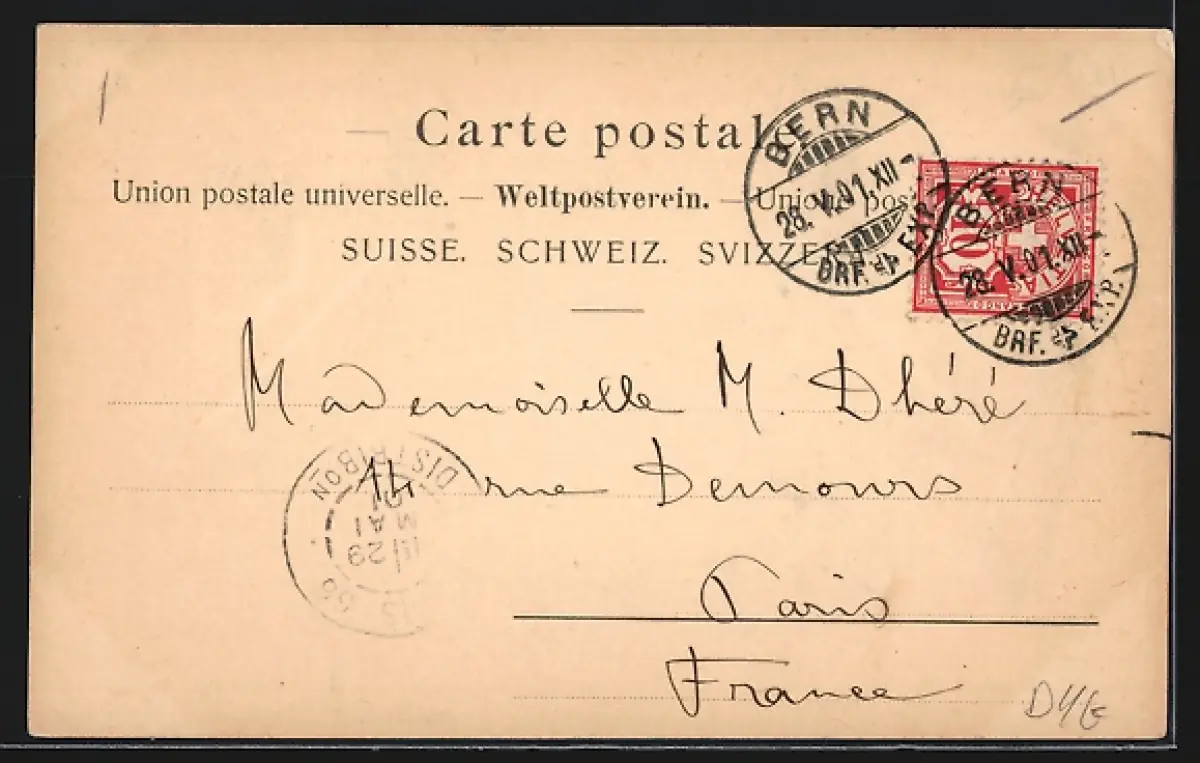 Carte postale
Union postale universelle. — Weltpostverein. — Unione pos
SUISSE. SCHWEIZ. SVIZZE
BERN
28. V. 01. XII
BRF. EXP.
BERN
28. V. 01. XII
BRF. EXP.
10
Mademoiselle M. Dhéré
14 rue Demours
Paris
France
DISTRIBON
29
MAI
01
66